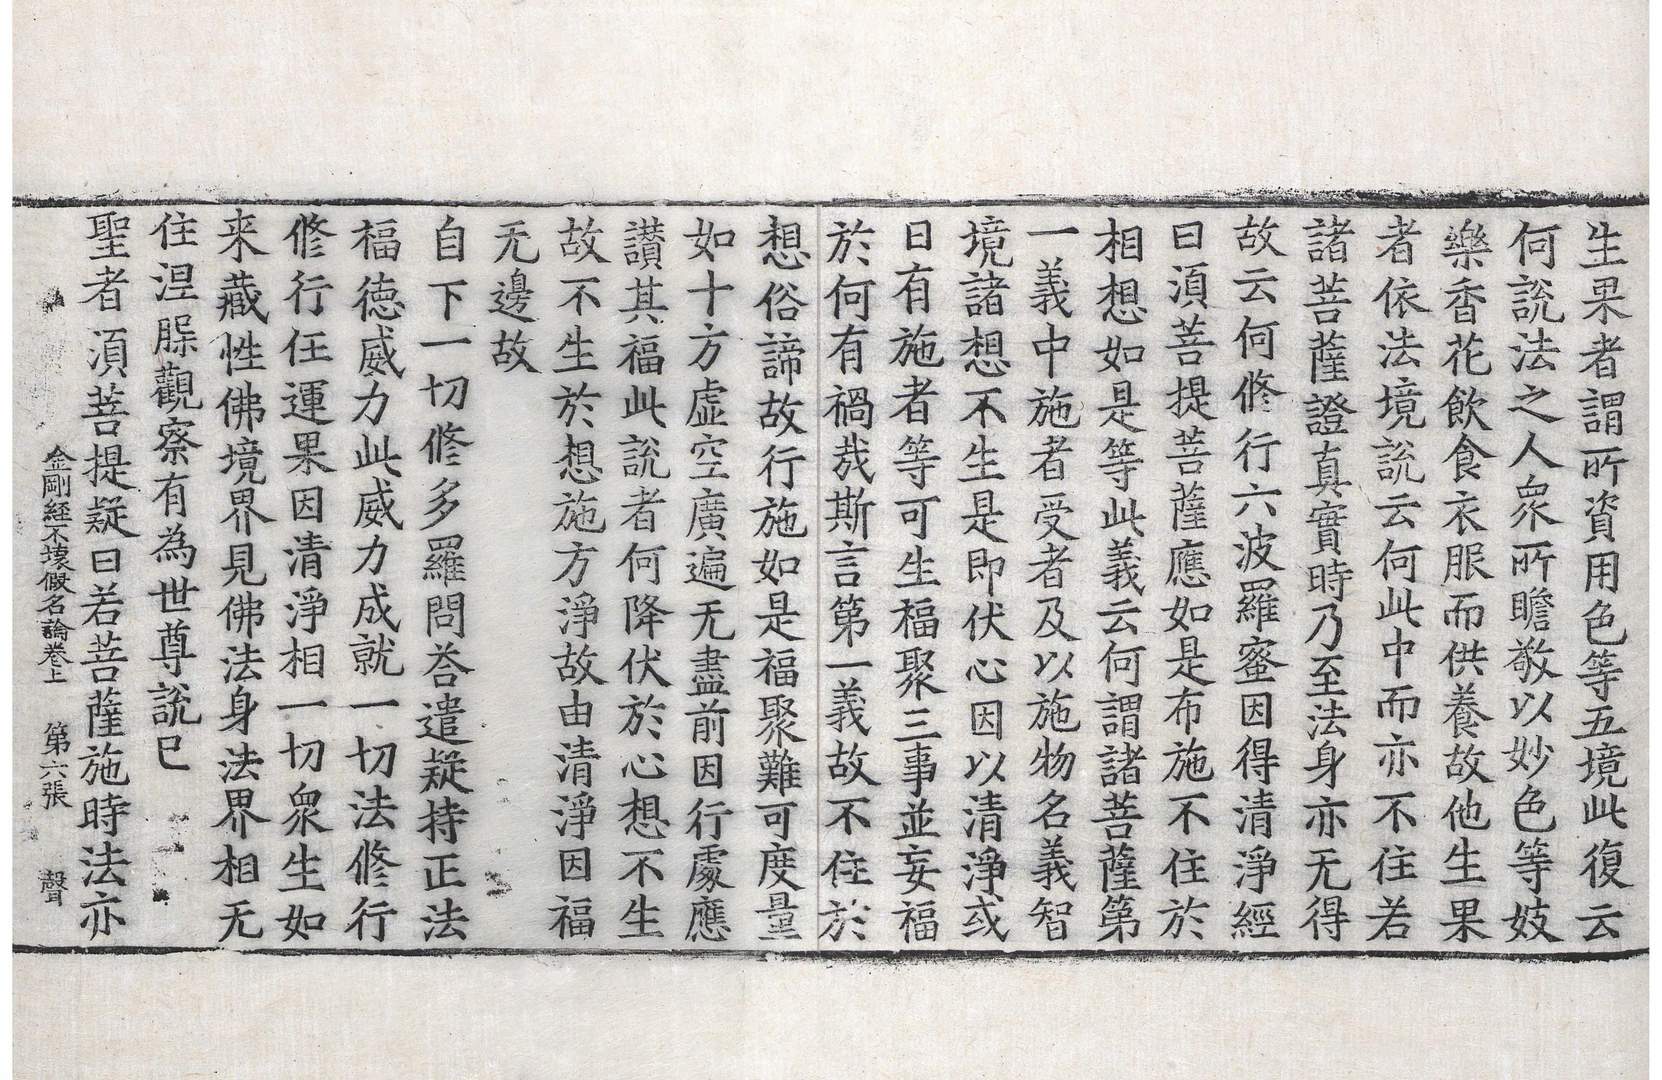 生果者謂所資用色等五境此復云
何說法之人衆所瞻敬以妙色等妓
樂香花飲食衣服而供養故他生果
者依法境說云何此中而亦不住若
諸菩薩證真實時乃至法身亦无得
故云何修行六波羅蜜因得清淨經
曰湏菩提菩薩應如是布施不住於
相想如是等此義云何謂諸菩薩第
一義中施者受者及以施物名義智
境諸想不生是即伏心因以清淨或
曰有施者等可生福聚三事並妄福
於何有禍㢤斯言第一義故不住於
想俗諦故行施如是福聚難可度量
如十方虛空廣遍无盡前因行處應
讚其福此說者何降伏於心想不生
故不生於想施方淨故由清淨因福
无邊故
自下一切修多羅問荅遣疑持正法
福德威力此威力成就一切法修行
修行任運果因清淨相一切衆生如
来藏性佛境界見佛法身法界相无
住涅槃觀察有為世尊說已
聖者湏菩提疑曰若菩薩施時法亦
金剛經不壊假名論卷上　第六張　聲